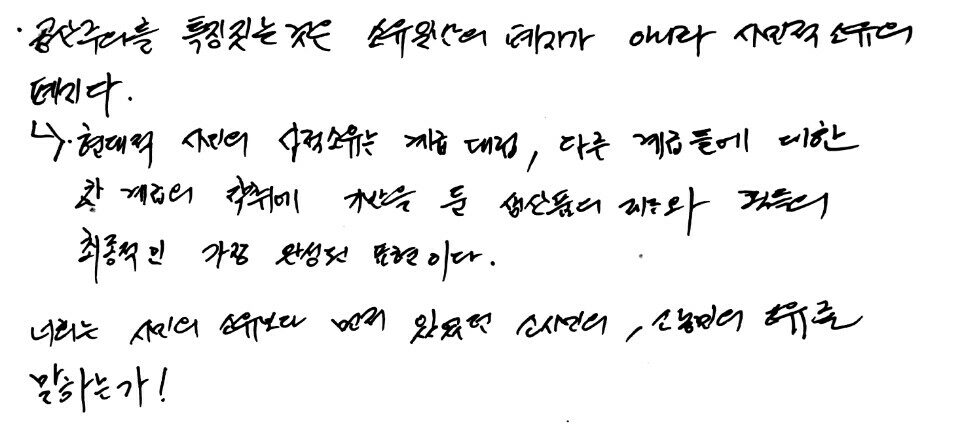 · 공산주의를 특징짓는 것은 소유일반의 폐지가 아니라 시민적 소유의
폐지다.
↳· 현대적 시민의 사적소유는 계급 대립, 다른 계급들에 대한
한 계급의 착취에 기반을 둔 생산품의 제조와 획득의
최종적인 가장 완성된 표현이다.
너희는 시민의 소유보다 먼저 있었던 소시민의, 소농민의 소유를
말하는가!